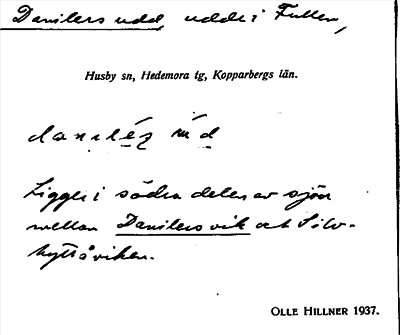 Danilers udd, udde i Fullen,
Husby sn, Hedemora tg, Kopparbergs län.
Ligger i södra delen av sjön
mellan Danilersvik och Silv-
hyttåviken.
OLLE HILLNER 1937.